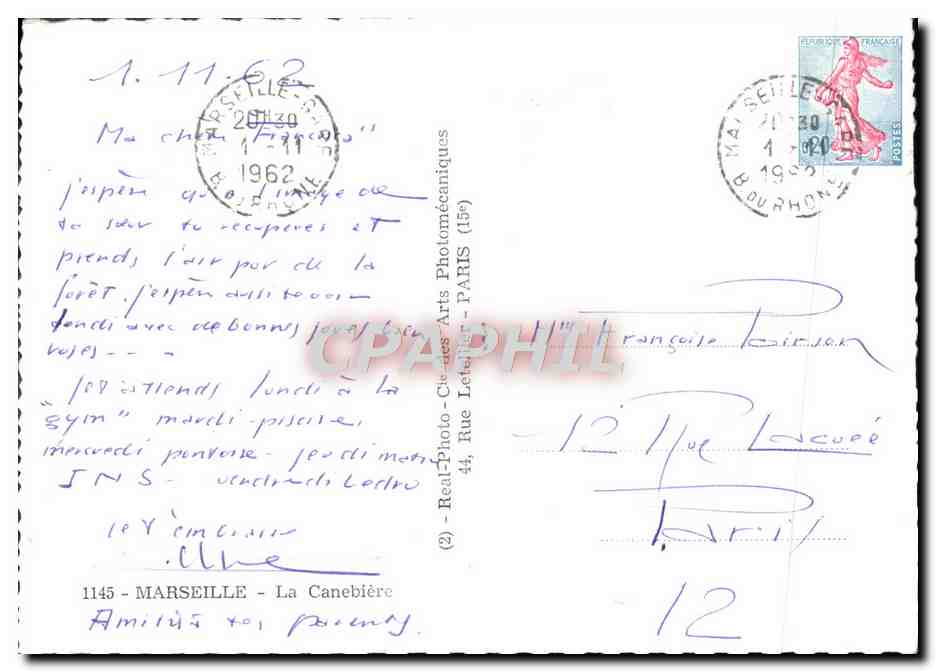 1.11.62
MARSEILLE-GARE
20H30
1-11
1962
B. DU RHONE
Ma chère Françoise"
j'espère qu'à l'image de
ta sœur tu récupères et
prends l'air pur de la
forêt. j'espère aussi te voir
lundi avec de bonnes joues bien
roses - - -
je t'attends lundi à la
"gym" mardi-piscine,
mercredi pontoise - jeudi matin
INS - vendredi Ledru
je t'embrasse
1145 - MARSEILLE - La Canebière
Amitiés tes parents.
(2) - Real-Photo - Cie des Arts Photomécaniques
44, Rue Letellier - PARIS (15e)
CPAPHIL
REPUBLIQUE FRANÇAISE
0,20
POSTES
MARSEILLE-GARE
20H30
1-11
1962
B. DU RHONE
Mlle Françoise Pierson
12 Rue Lacuée
Paris
12